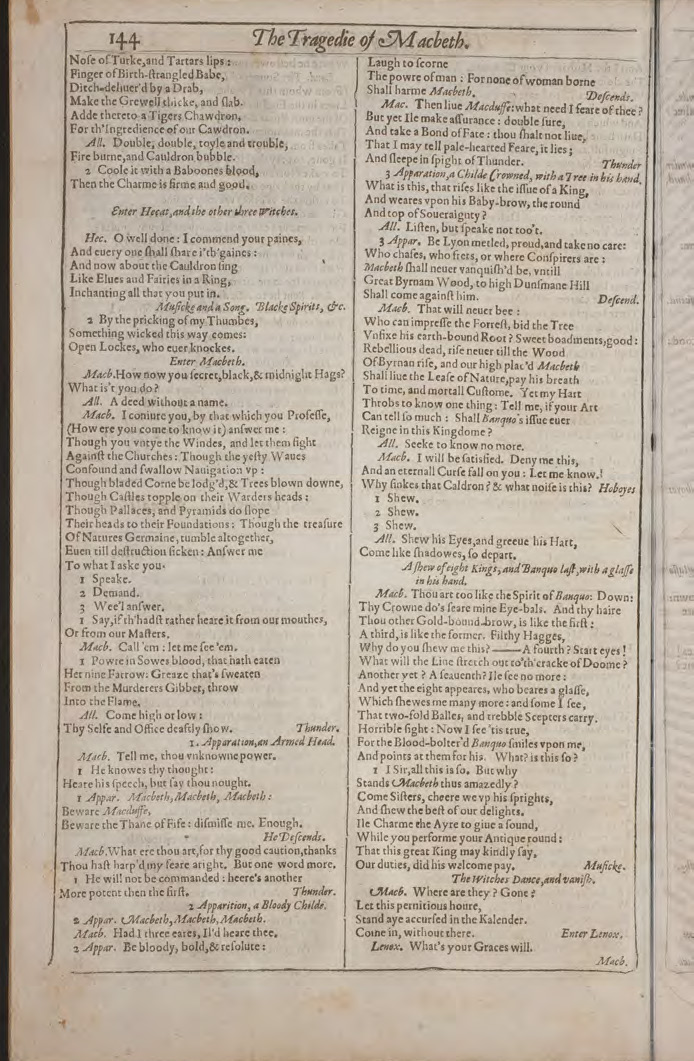 144
The Tragedie of Macbeth.
Nose of Turke, and Tartars lips:
Finger of Birth-strangled Babe,
Ditch-deliuer'd by a Drab,
Make the Grewell thicke, and slab.
Adde thereto a Tigers Chawdron,
For th'Ingredience of our Cawdron.
All. Double, double, toyle and trouble,
Fire burne, and Cauldron bubble.
2 Coole it with a Baboones blood,
Then the Charme is firme and good.
Enter Hecat, and the other three Witches.
Hec. O well done: I commend your paines,
And euery one shall share i'th'gaines:
And now about the Cauldron sing
Like Elues and Fairies in a Ring,
Inchanting all that you put in.
Musicke and a Song. Blacke Spirits, &c.
2 By the pricking of my Thumbes,
Something wicked this way comes:
Open Lockes, who euer knockes.
Enter Macbeth.
Macb. How now you secret, black, & midnight Hags?
What is't you do?
All. A deed without a name.
Macb. I coniure you, by that which you Professe,
(How ere you come to know it) answer me:
Though you vntye the Windes, and let them fight
Against the Churches: Though the yesty Waues
Confound and swallow Nauigation vp:
Though bladed Corne be lodg'd, & Trees blown downe,
Though Castles topple on their Warders heads:
Though Pallaces, and Pyramids do slope
Their heads to their Foundations: Though the treasure
Of Natures Germaine, tumble altogether,
Euen till destruction sicken: Answer me
To what I aske you.
1 Speake.
2 Demand.
3 Wee'l answer.
1 Say, if th'hadst rather heare it from our mouthes,
Or from our Masters.
Macb. Call 'em: let me see 'em.
1 Powre in Sowes blood, that hath eaten
Her nine Farrow: Greaze that's sweaten
From the Murderers Gibbet, throw
Into the Flame.
All. Come high or low:
Thy Selfe and Office deaftly show. Thunder.
1. Apparation, an Armed Head.
Macb. Tell me, thou vnknowne power.
1 He knowes thy thought:
Heare his speech, but say thou nought.
1 Appar. Macbeth, Macbeth, Macbeth:
Beware Macduffe,
Beware the Thane of Fife: dismisse me. Enough.
He Descends.
Macb. What ere thou art, for thy good caution, thanks
Thou hast harp'd my feare aright. But one word more.
1 He will not be commanded: heere's another
More potent then the first. Thunder.
2 Apparition, a Bloody Childe.
2 Appar. Macbeth, Macbeth, Macbeth.
Macb. Had I three eares, Il'd heare thee.
2 Appar. Be bloody, bold, & resolute:
Laugh to scorne
The powre of man: For none of woman borne
Shall harme Macbeth. Descends.
Mac. Then liue Macduffe: what need I feare of thee?
But yet Ile make assurance: double sure,
And take a Bond of Fate: thou shalt not liue,
That I may tell pale-hearted Feare, it lies;
And sleepe in spight of Thunder. Thunder
3 Apparation, a Childe Crowned, with a Tree in his hand.
What is this, that rises like the issue of a King,
And weares vpon his Baby-brow, the round
And top of Soueraignty?
All. Listen, but speake not too't.
3 Appar. Be Lyon metled, proud, and take no care:
Who chafes, who frets, or where Conspirers are:
Macbeth shall neuer vanquish'd be, vntill
Great Byrnam Wood, to high Dunsmane Hill
Shall come against him. Descend.
Macb. That will neuer bee:
Who can impresse the Forrest, bid the Tree
Vnfixe his earth-bound Root? Sweet boadments, good:
Rebellious dead, rise neuer till the Wood
Of Byrnan rise, and our high plac'd Macbeth
Shall liue the Lease of Nature, pay his breath
To time, and mortall Custome. Yet my Hart
Throbs to know one thing: Tell me, if your Art
Can tell so much: Shall Banquo's issue euer
Reigne in this Kingdome?
All. Seeke to know no more.
Macb. I will be satisfied. Deny me this,
And an eternall Curse fall on you: Let me know.
Why sinkes that Caldron? & what noise is this? Hoboyes
1 Shew.
2 Shew.
3 Shew.
All. Shew his Eyes, and greeue his Hart,
Come like shadowes, so depart.
A shew of eight Kings, and Banquo last, with a glasse
in his hand.
Macb. Thou art too like the Spirit of Banquo: Down:
Thy Crowne do's seare mine Eye-bals. And thy haire
Thou other Gold-bound-brow, is like the first:
A third, is like the former. Filthy Hagges,
Why do you shew me this?——A fourth? Start eyes!
What will the Line stretch out to'th'cracke of Doome?
Another yet? A seauenth? Ile see no more:
And yet the eight appeares, who beares a glasse,
Which shewes me many more: and some I see,
That two-fold Balles, and trebble Scepters carry.
Horrible sight: Now I see 'tis true,
For the Blood-bolter'd Banquo smiles vpon me,
And points at them for his. What? is this so?
1 I Sir, all this is so. But why
Stands Macbeth thus amazedly?
Come Sisters, cheere we vp his sprights,
And shew the best of our delights.
Ile Charme the Ayre to giue a sound,
While you performe your Antique round:
That this great King may kindly say,
Our duties, did his welcome pay. Musicke.
The Witches Dance, and vanish.
Macb. Where are they? Gone?
Let this pernitious houre,
Stand aye accursed in the Kalender.
Come in, without there. Enter Lenox.
Lenox. What's your Graces will.
Macb.